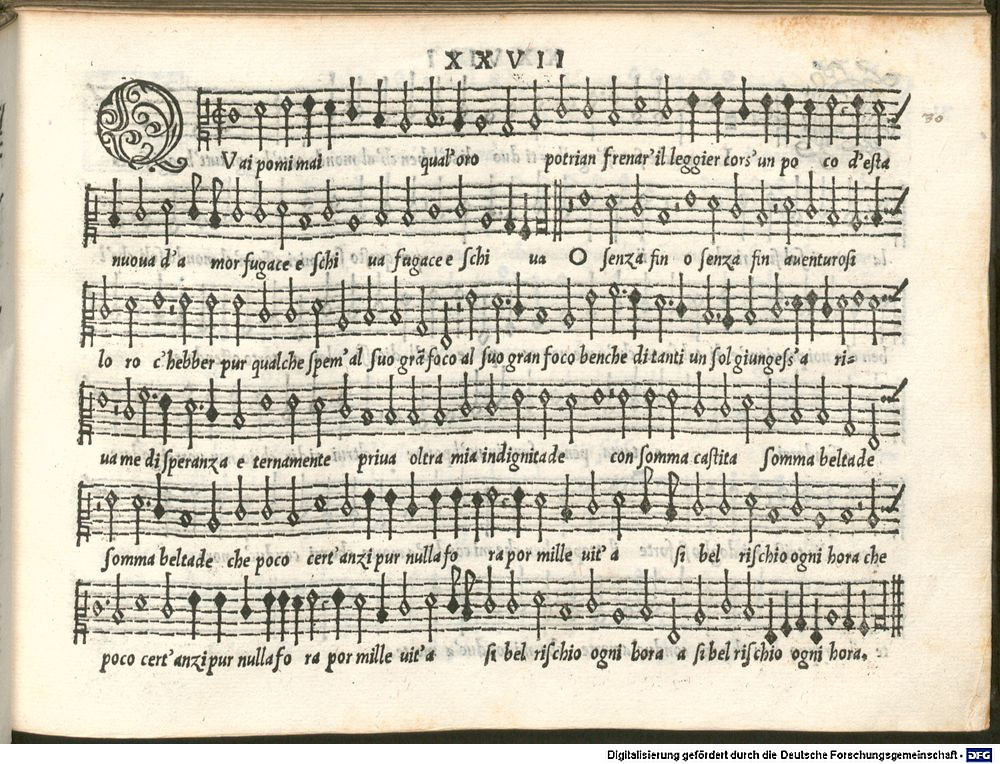 XXVII
30
QVai pomi mai qual'oro potrian frenar'il leggier cors'un po co d'esta
nuova d'a mor fugace e schi va fugace e schi va O senza fin o senza fin aventurosi
lo ro c'hebber pur qualche spem' al suo grã foco al suo gran foco benche di tanti un sol giungess'a ri=
va me di speranza e ternamente priva oltra mia indignitade con somma castita somma beltade
somma beltade che poco cert'anzi pur nulla fo ra por mille vit'a si bel rischio ogni hora che
poco cert'anzi pur nulla fo ra por mille vit'a si bel rischio ogni hora a si bel rischio ogni hora.
Digitalisierung gefördert durch die Deutsche Forschungsgemeinschaft - DFG